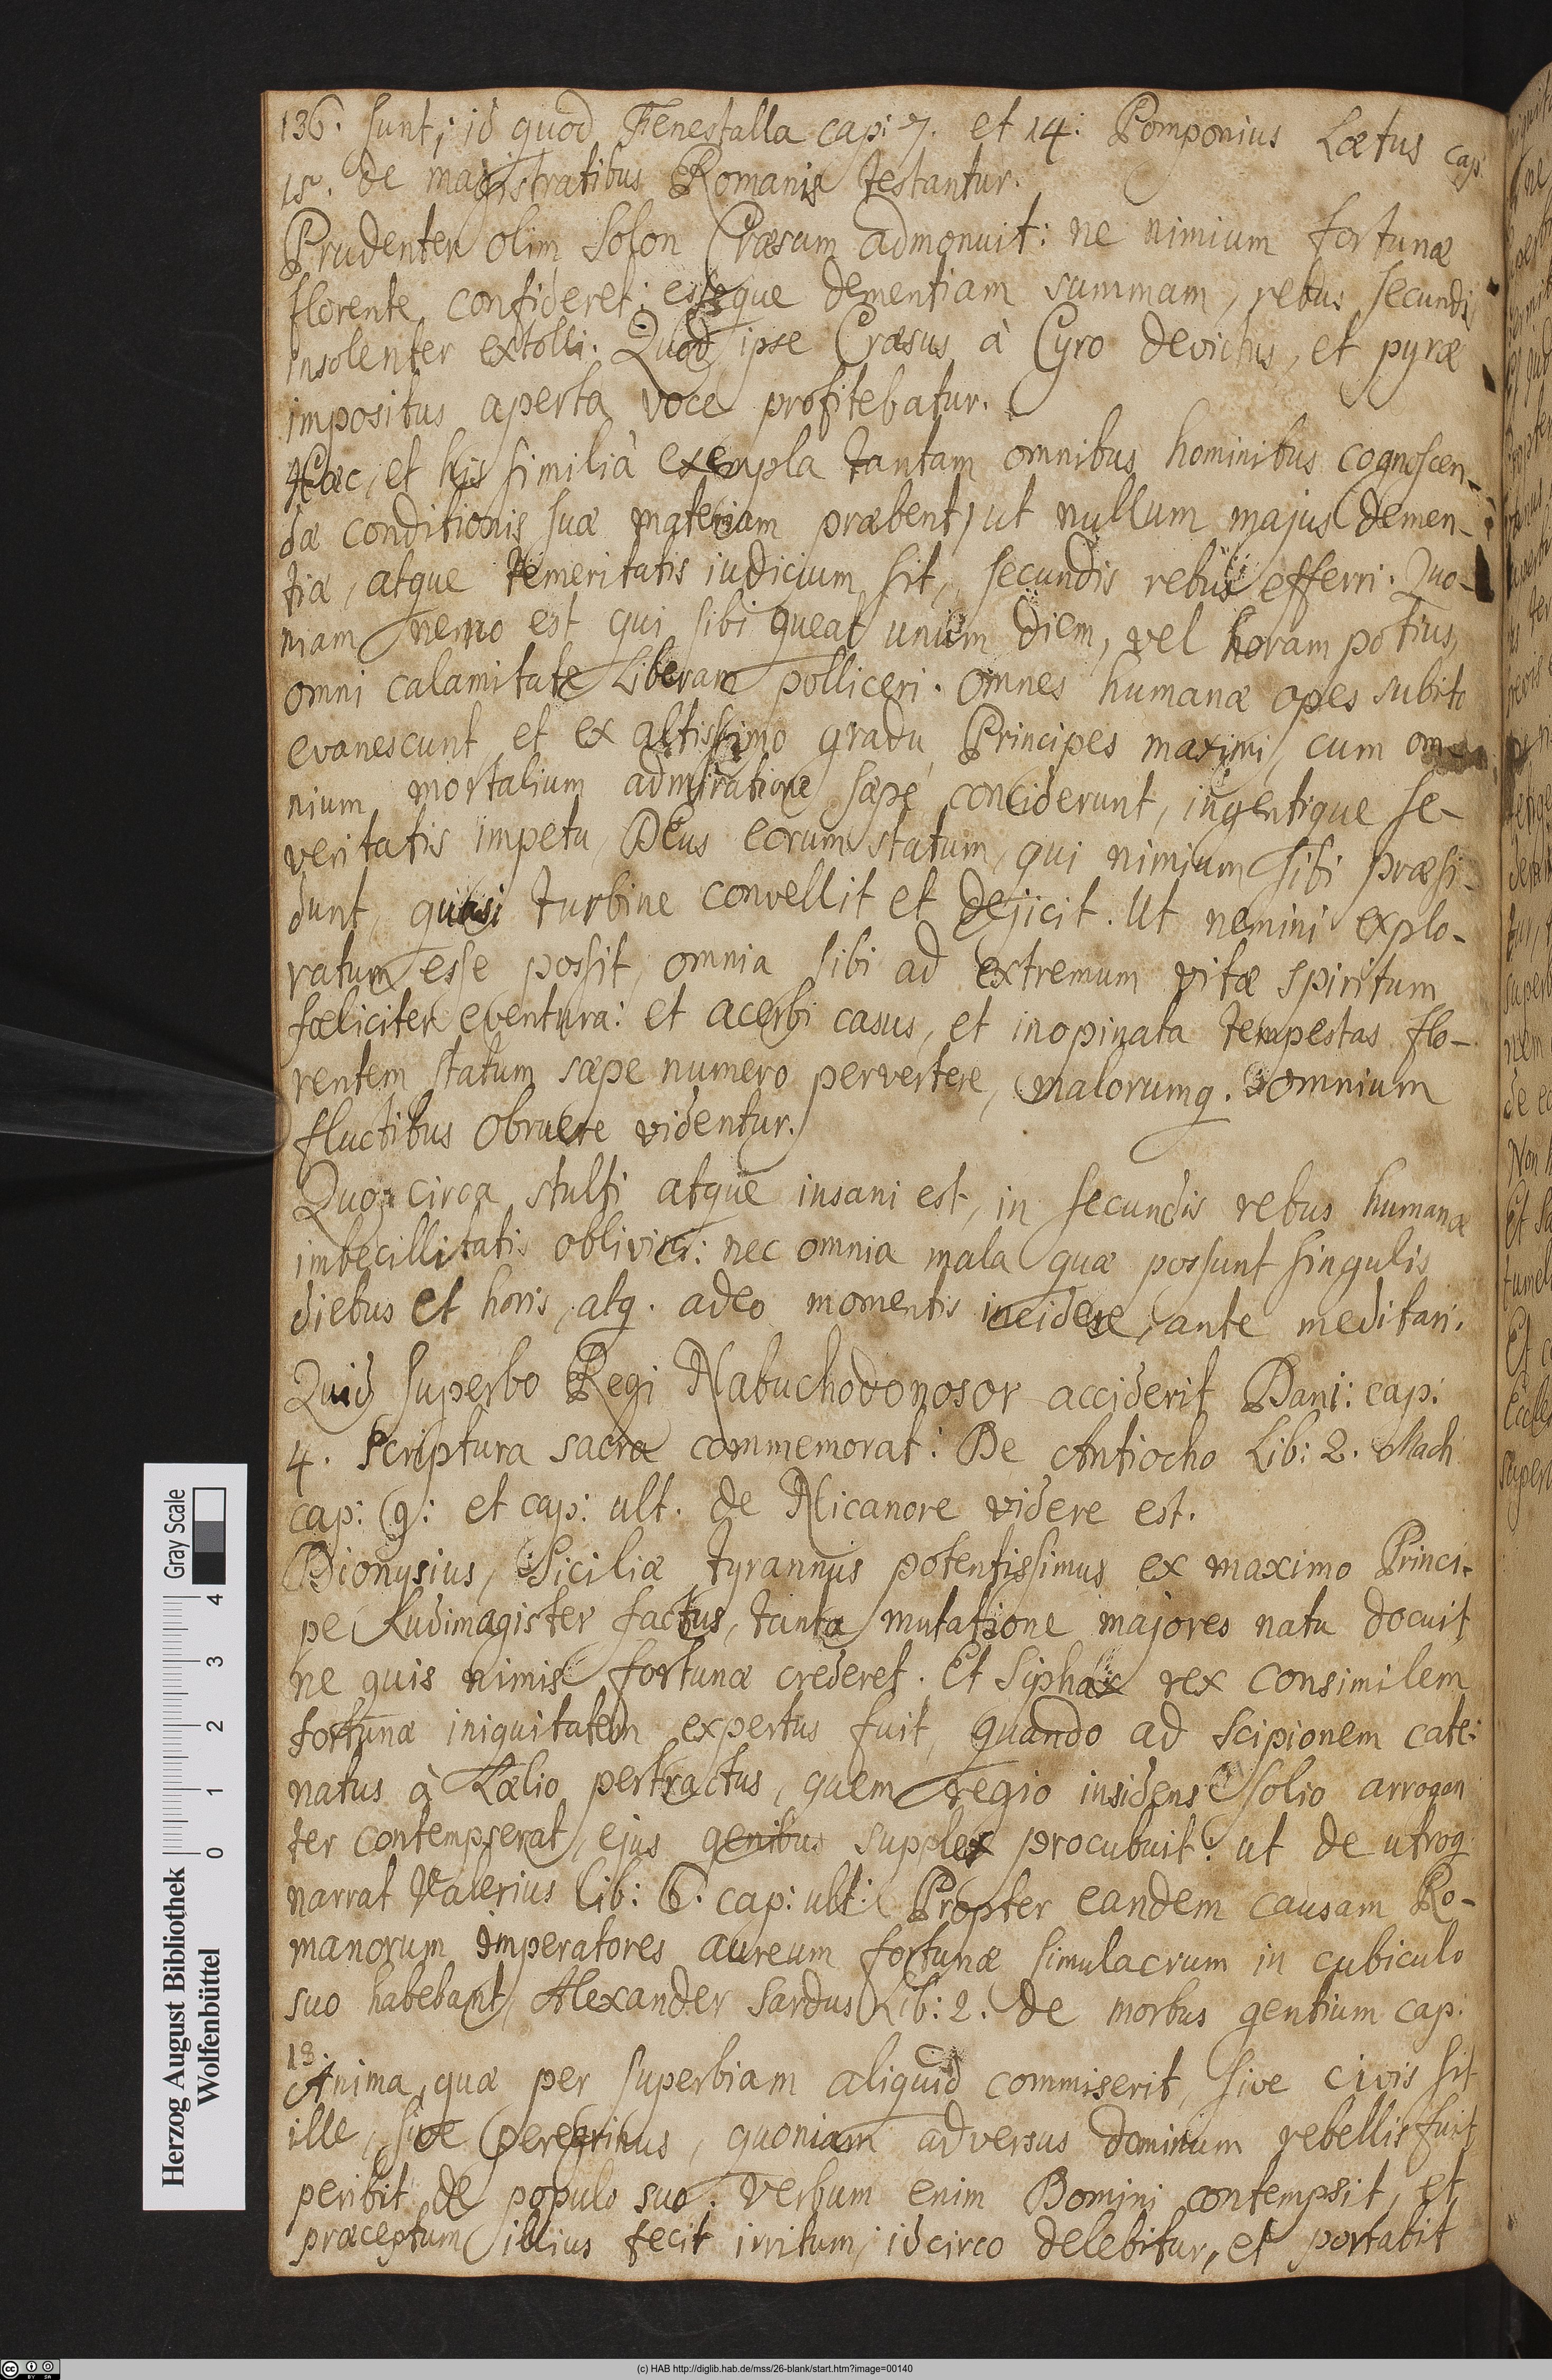 136. sunt; id quod Fenestalla cap: 7. et 14: Pomponius Lætus cap:
15. de magistratibus Romanis testantur.
Prudenter olim Solon Cræsum admonuit: ne nimium fortunæ
florente confideret; esseque dementiam summam, rebus secundis
insolenter extolli. Quod ipse Cræsus à Cyro devictus, et pyræ
impositus aperta voce profitebatur.
Hæc, et his similia exempla tantam omnibus hominibus cognoscen-
dæ conditionis suæ materiam præbent, ut nullum majus demen-
tiæ, atque temeritatis iudicium sit, secundis rebus efferri. Quo-
niam nemo est qui sibi queat unum diem, vel horam potius,
omni calamitate liberam polliceri. Omnes humanæ opes subito
evanescunt et ex altissimo gradu Principes maximi, cum om-
nium mortalium admiratione sæpe conciderunt, ingentique se-
veritatis impetu Deus eorum statum, qui nimium sibi præsi-
dunt, quasi turbine convellit et dejicit. Ut nemini explo-
ratum esse possit, omnia sibi ad extremum vitæ spiritum
fœliciter eventura: et acerbi casus, et inopinata tempestas flo-
rentem statum sæpe numero pervertere, malorumq. omnium
fluctibus obruere videntur.
Quo circa stulti atque insani est, in secundis rebus humanæ
imbecillitatis oblivisci: nec omnia mala quæ possunt singulis
diebus et horis, atq. adeo momentis incidere, ante meditari.
Quid superbo Regi Nabuchodonosor acciderit Dani: cap:
4. Scriptura sacra commemorat: De Antiocho Lib: 2. Mach
cap: 9: et cap: ult. de Nicanore videre est.
Dionysius, Siciliæ tyrannus potentissimus ex maximo Princi-
pe Ludimagister factus, tanta mutatione majores natu docuit
ne quis nimis fortunæ crederet. Et Siphax rex consimilem
fortunæ iniquitatem expertus fuit, quando ad Scipionem cate:
natus à Lælio pertractus, quem regio insidens solio arrogan
ter contempserat, ejus genibus supplex procubuit: ut de utroq
narrat Valerius lib: 6. cap: ult: Propter eandem causam Ro-
manorum Imperatores aureum fortunæ simulacrum in cubiculo
suo habebant, Alexander Sardus Lib: 2. de morbus gentium cap:
18.
Anima, quæ per superbiam aliquid commiserit, sive civis sit
ille, sive peregrinus, quoniam adversus dominum rebellis fuit
peribit de populo suo: Verbum enim Domini contempsit, et
præceptum illius fecit irritum; idcirco delebitur, et portabit
Herzog August Bibliothek
Wolfenbüttel
0 1 2 3 4
Gray Scale
(c) HAB http://diglib.hab.de/mss/26-blank/start.htm?image=00140